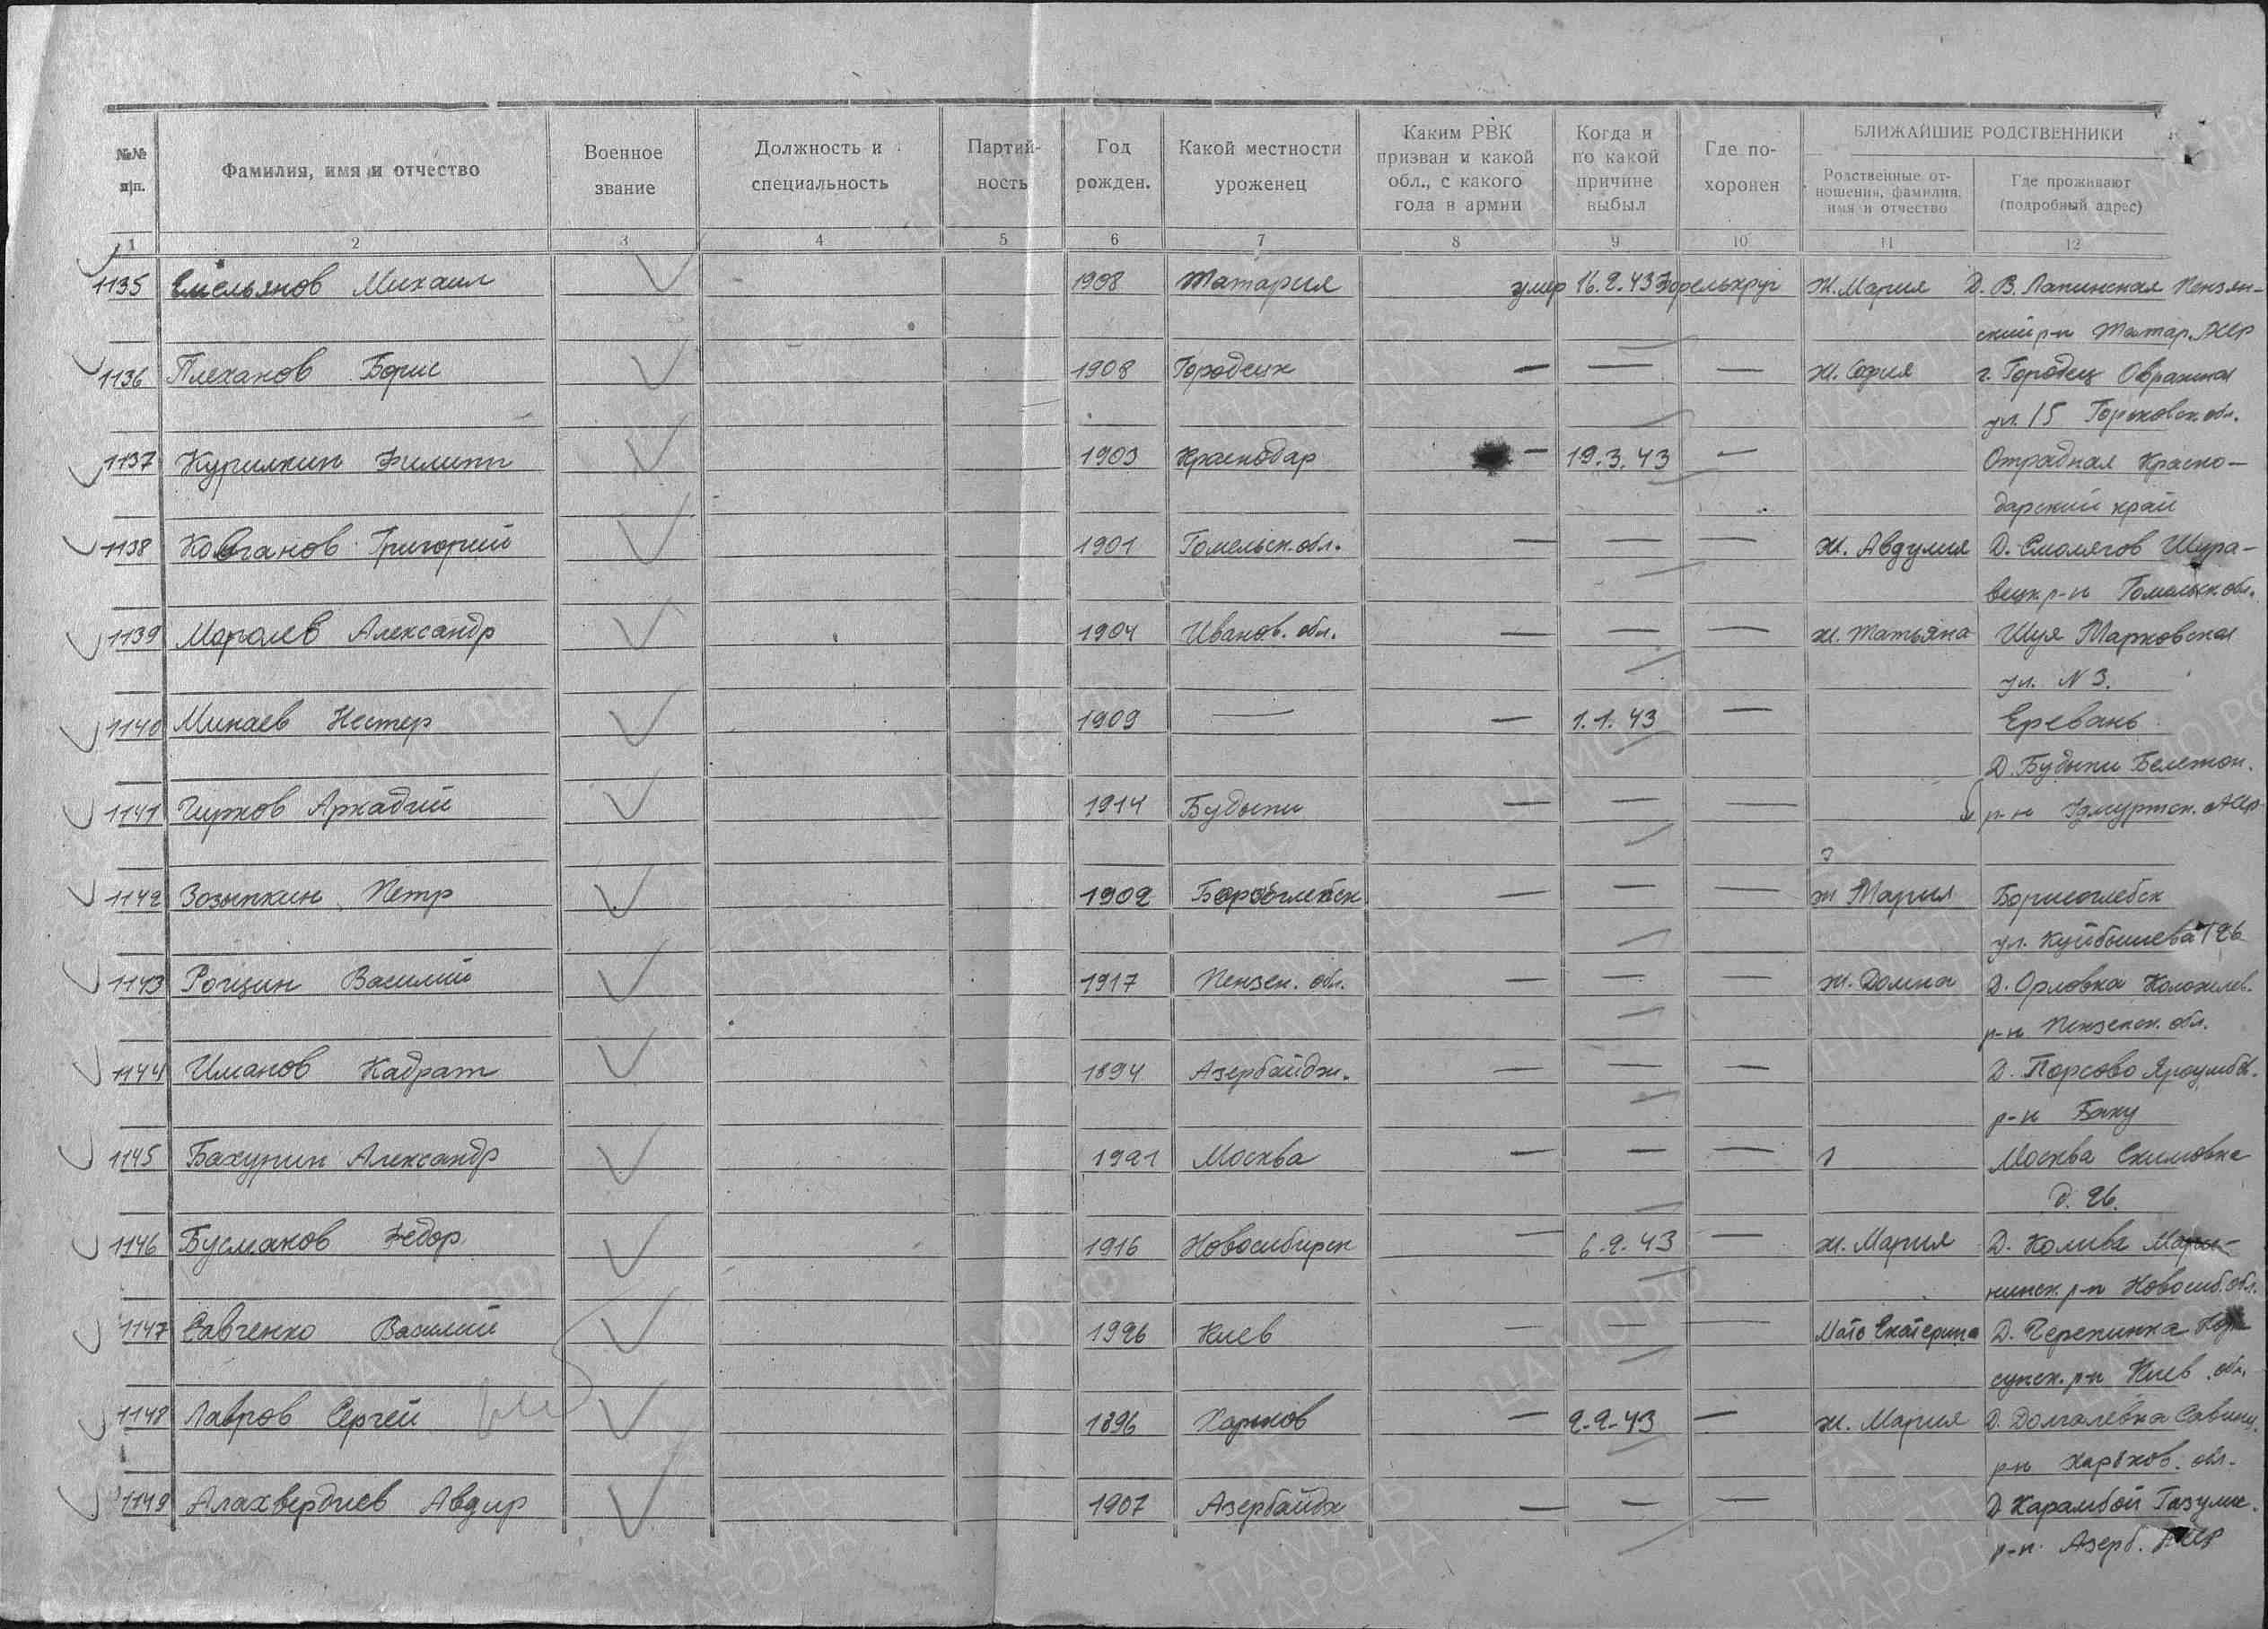 №№ п/п.
Фамилия, имя и отчество
Военное звание
Должность и специальность
Партий-ность
Год рожден.
Какой местности уроженец
Каким РВК призван и какой обл., с какого года в армии
Когда и по какой причине выбыл
Где по-хоронен
БЛИЖАЙШИЕ РОДСТВЕННИКИ
Родственные от-ношения, фамилия, имя и отчество
Где проживают (подробный адрес)
1 2 3 4 5 6 7 8 9 10 11 12
1135 Емельянов Михаил 1908 Татария умер 16.2.43 Ж. Мария Д. В. Лапинская Пензян-
ский р-н Татар.
1136 Плеханов Борис 1908 Городецк — — — Ж. София г. Городец Овражная
ул. 15 Горьковск. обл.
1137 Курилкин Филипп 1903 Краснодар — 19.3.43 — Отрадная Красно-
дарский край
1138 Григорий 1901 Гомельск. обл. — — — Ж. Авдулия Д. Смолягов Шура-
вецк р-н Гомельск. обл.
1139 Маролев Александр 1904 Иванов. обл. — — — Ж. Татьяна Шуя Марковская
ул. N 3.
1140 Минаев Нестер 1909 — — 1.1.43 — Еревань
Д. Будыпи
1141 Чирков Аркадий 1914 Будыпи — — — р-н Удмуртск.
1142 Зозыпкин Петр 1902 — — — Ж Мария Борисоглебск
ул. Куйбышева 126
1143 Рощин Василий 1917 Пензен. обл. — — — Ж. Домна Д. Орловка
р-н Пензенск. обл.
1144 Иманов Кадрат 1894 Азербайдж. — — — Д. Порсово
р-н Баку
1145 Бахурин Александр 1921 Москва — — — Москва
д. 26.
1146 Бусманов Федор 1916 Новосибирск — 6.2.43 — Ж. Мария Д. Колива Мари-
нинск. р-н Новосиб. обл.
1147 Савченко Василий 1926 Киев — — — Мать Екатерина Д. Черепинка
сунск. р-н Киев. обл.
1148 Лавров Сергей 1896 Харьков — 2-2-43 — Ж. Мария Д. Долгалевка Савинц.
р-н Харьков. обл.
1149 Алахвердиев Авдир 1907 Азербайдж — — — Д Карамбой
р-н Азерб.